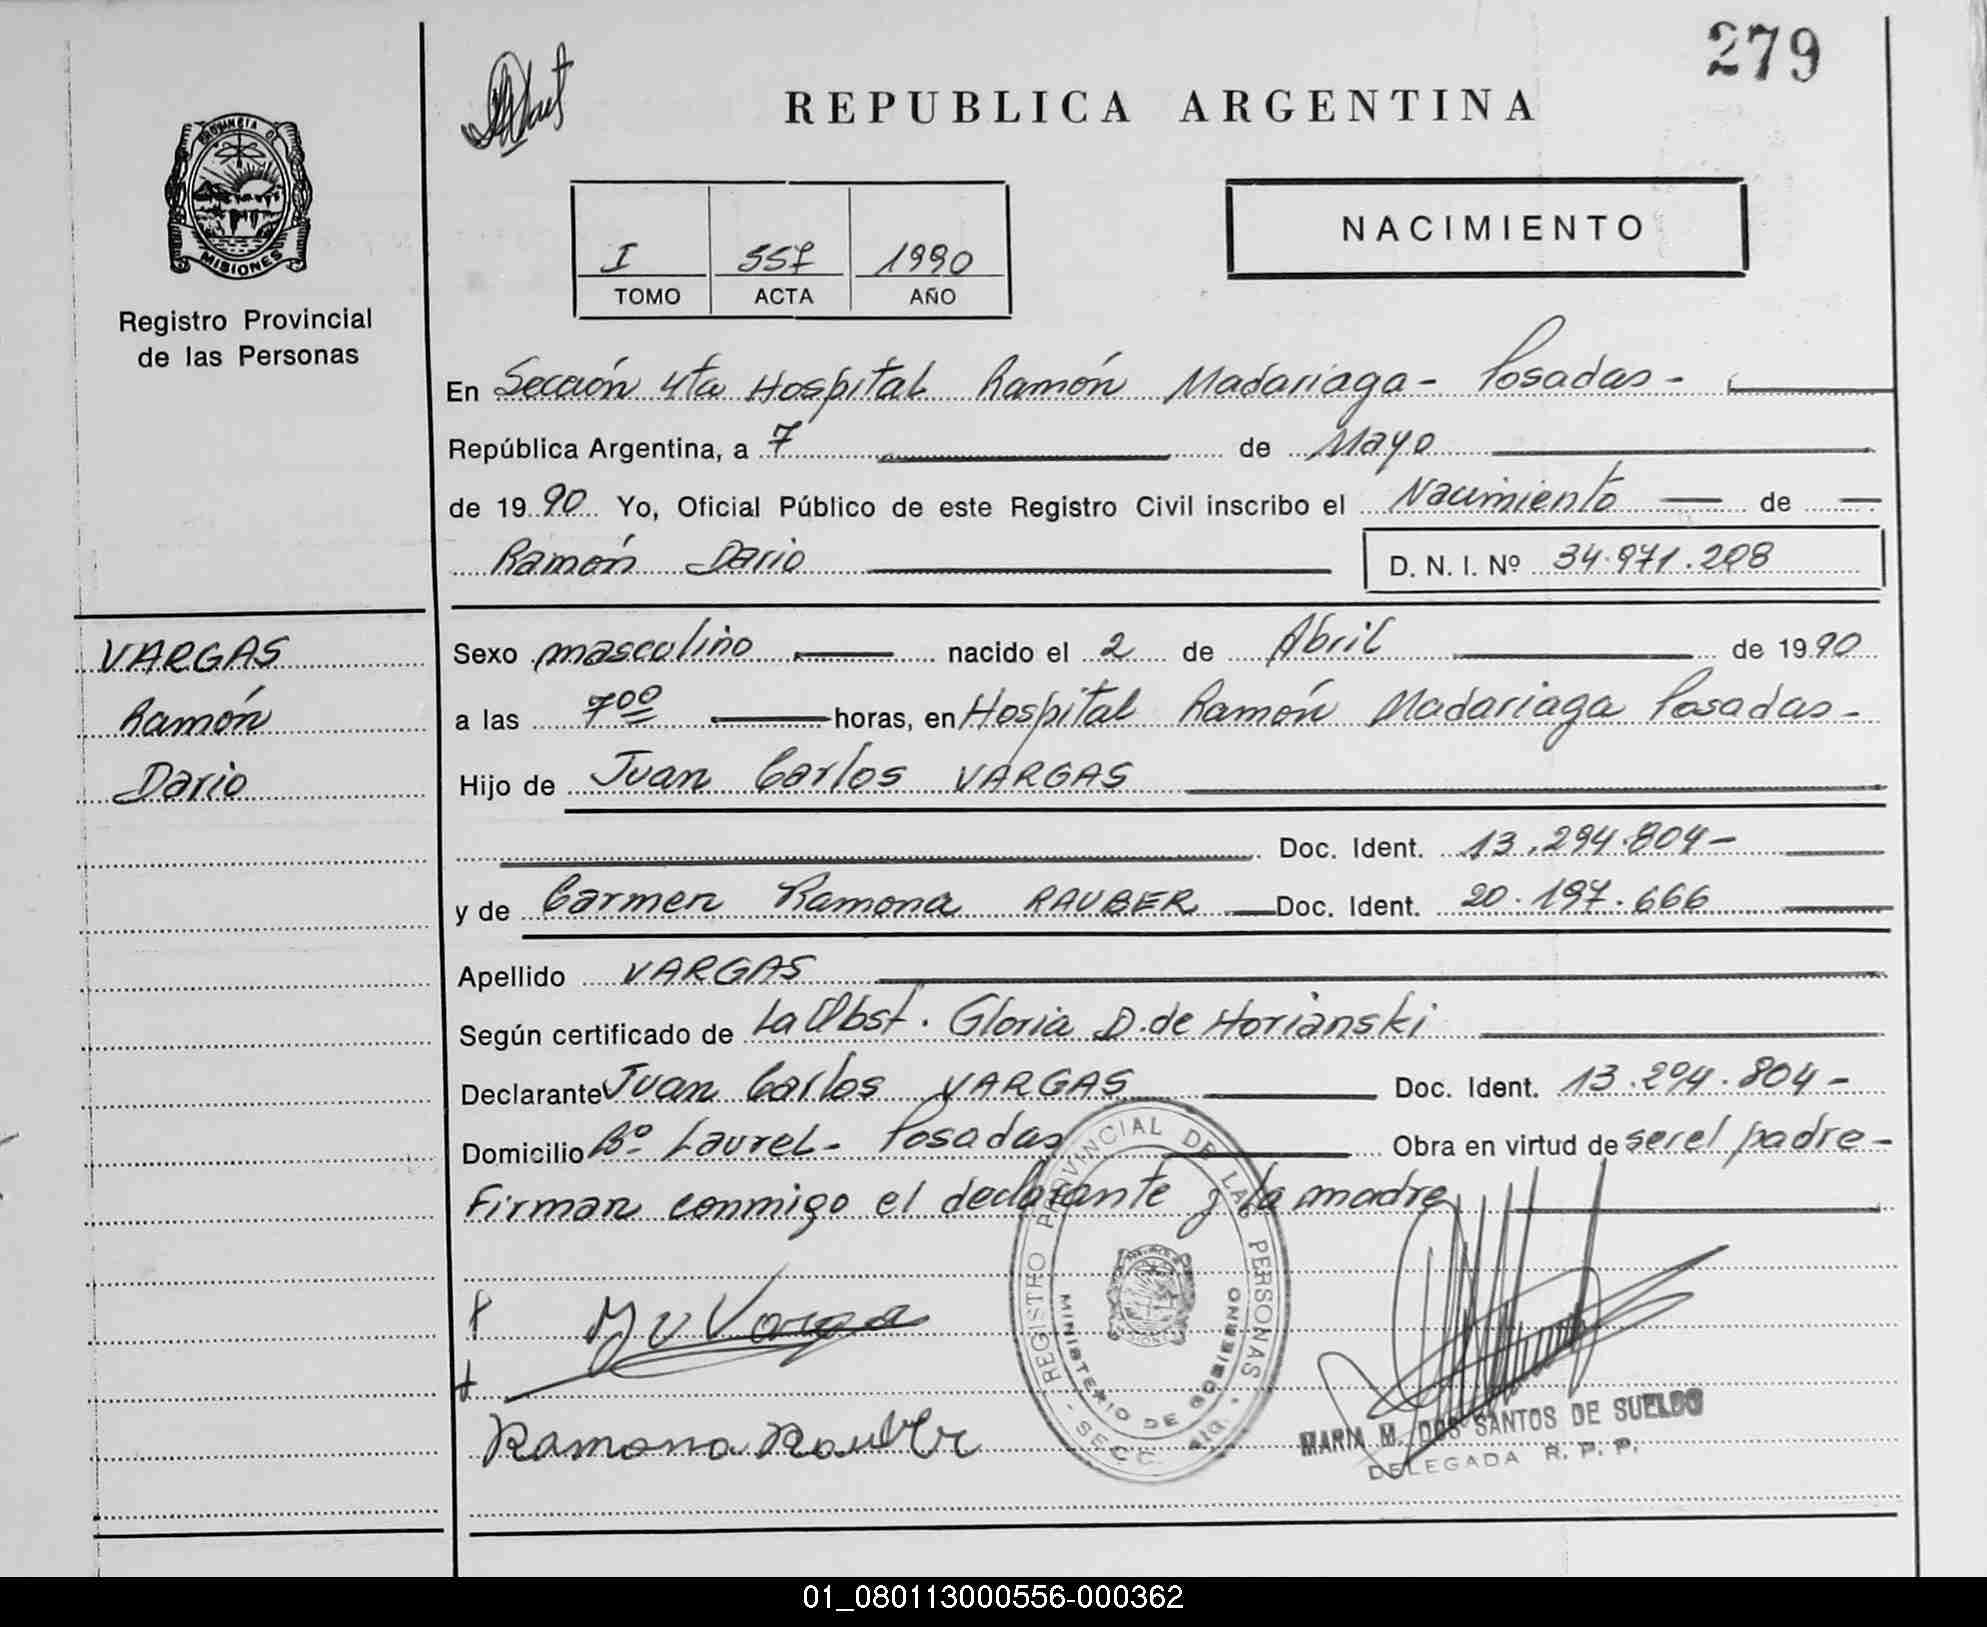 279
REPUBLICA ARGENTINA
PROVINCIA DE
MISIONES
Registro Provincial
de las Personas
NACIMIENTO
I 557 1990
TOMO ACTA AÑO
En Sección 4ta Hospital Ramón Madariaga - Posadas -
República Argentina, a 7 de Mayo
de 1990 Yo, Oficial Público de este Registro Civil inscribo el Nacimiento de
Ramón Dario D. N. I. Nº 34.971.208
VARGAS
Ramón
Dario
Sexo masculino nacido el 2 de Abril de 1990
a las 7⁰⁰ horas, en Hospital Ramón Madariaga Posadas -
Hijo de Juan Carlos VARGAS
Doc. Ident. 13.294.804 -
y de Carmen Ramona RAUBER Doc. Ident. 20.197.666
Apellido VARGAS
Según certificado de La Obst. Gloria D. de Horianski
Declarante Juan Carlos VARGAS Doc. Ident. 13.294.804 -
Domicilio Bº Laurel - Posadas Obra en virtud de ser el padre -
Firman conmigo el declarante y la madre
Vargas
Ramona Rauber
REGISTRO PROVINCIAL DE LAS PERSONAS
MINISTERIO DE GOBIERNO
SECC. 4ta.
MARIA M. DOS SANTOS DE SUELDO
DELEGADA R. P. P.
01_080113000556-000362